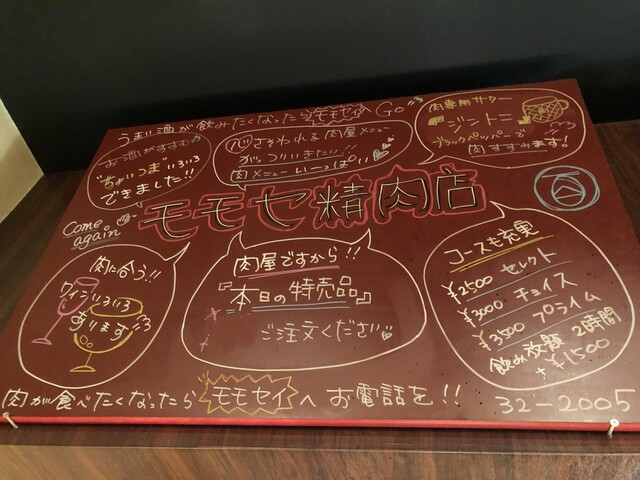 うまい酒が飲みたくなったらモモセイへGo
お酒がすすむ
"ちょいつま"いろいろ
できました!!
心さそわれる肉屋メニュー
がっついきたい!!
肉メニューいーっぱい
肉専用サワー
『ジントニ』
ブラックペッパーで
肉すすみます。
モモセ精肉店
肉
Come
again
肉に合う!!
ワインいろいろ
あります
肉屋ですから!!
『本日の特売品』
ご注文ください
コースも充実
¥2500 セレクト
¥3000 チョイス
¥3500 プライム
飲み放題 2時間
+¥1500
肉が食べたくなったらモモセイへお電話を!! 32-2005